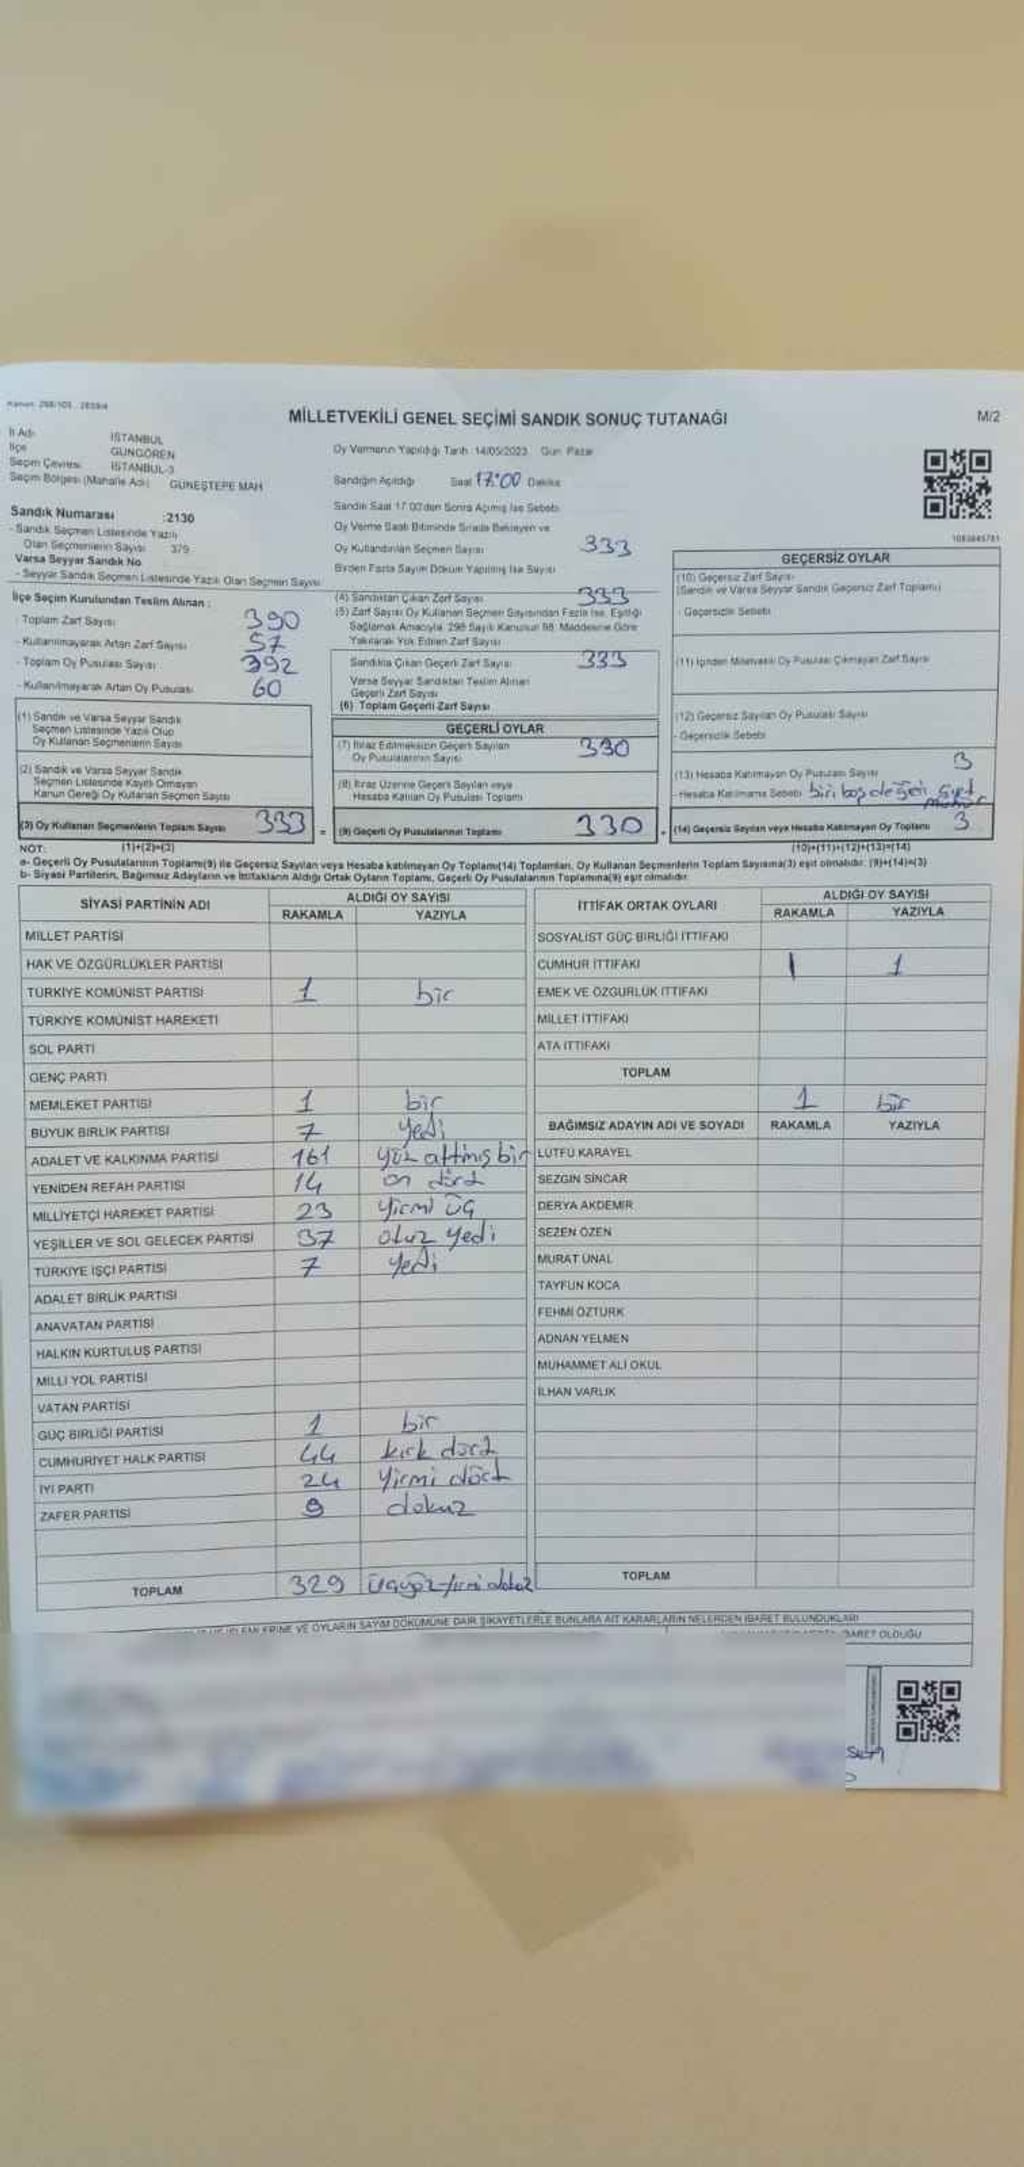 Kanun: 298/105 , 2839/4
MİLLETVEKİLİ GENEL SEÇİMİ SANDIK SONUÇ TUTANAĞI
M/2
İl Adı İSTANBUL
İlçe GÜNGÖREN
Seçim Çevresi İSTANBUL-3
Seçim Bölgesi (Mahalle Adı) GÜNEŞTEPE MAH
Sandık Numarası :2130
- Sandık Seçmen Listesinde Yazılı
Olan Seçmenlerin Sayısı 379
Varsa Seyyar Sandık No
- Seyyar Sandık Seçmen Listesinde Yazılı Olan Seçmen Sayısı
Oy Vermenin Yapıldığı Tarih :14/05/2023 Gün Pazar
Sandığın Açıldığı Saat 17:00 Dakika
Sandık Saat 17.00'den Sonra Açılmış İse Sebebi
Oy Verme Saati Bitiminde Sırada Bekleyen ve
Oy Kullandırılan Seçmen Sayısı 333
Birden Fazla Sayım Döküm Yapılmış İse Sayısı
İlçe Seçim Kurulundan Teslim Alınan :
- Toplam Zarf Sayısı 390
- Kullanılmayarak Artan Zarf Sayısı 57
- Toplam Oy Pusulası Sayısı 392
- Kullanılmayarak Artan Oy Pusulası 60
(1) Sandık ve Varsa Seyyar Sandık
Seçmen Listesinde Yazılı Olup
Oy Kullanan Seçmenlerin Sayısı
(2) Sandık ve Varsa Seyyar Sandık
Seçmen Listesinde Kayıtlı Olmayan
Kanun Gereği Oy Kullanan Seçmen Sayısı
(3) Oy Kullanan Seçmenlerin Toplam Sayısı 333 =
(4) Sandıktan Çıkan Zarf Sayısı 333
(5) Zarf Sayısı Oy Kullanan Seçmen Sayısından Fazla İse, Eşitliği
Sağlamak Amacıyla, 298 Sayılı Kanunun 98. Maddesine Göre
Yakılarak Yok Edilen Zarf Sayısı
Sandıkta Çıkan Geçerli Zarf Sayısı 333
Varsa Seyyar Sandıktan Teslim Alınan
Geçerli Zarf Sayısı
(6) Toplam Geçerli Zarf Sayısı
GEÇERLİ OYLAR
(7) İtiraz Edilmeksizin Geçerli Sayılan
Oy Pusulalarının Sayısı 330
(8) İtiraz Üzerine Geçerli Sayılan veya
Hesaba Katılan Oy Pusulası Toplamı
(9) Geçerli Oy Pusulalarının Toplamı 330
GEÇERSİZ OYLAR
(10) Geçersiz Zarf Sayısı
(Sandık ve Varsa Seyyar Sandık Geçersiz Zarf Toplamı)
- Geçersizlik Sebebi
(11) İçinden Milletvekili Oy Pusulası Çıkmayan Zarf Sayısı
(12) Geçersiz Sayılan Oy Pusulası Sayısı
- Geçersizlik Sebebi
(13) Hesaba Katılmayan Oy Pusulası Sayısı 3
- Hesaba Katılmama Sebebi biri boş
(14) Geçersiz Sayılan veya Hesaba Katılmayan Oy Toplamı 3
NOT: (1)+(2)=(3)
(10)+(11)+(12)+(13)=(14)
a- Geçerli Oy Pusulalarının Toplamı(9) ile Geçersiz Sayılan veya Hesaba katılmayan Oy Toplamı(14) Toplamları, Oy Kullanan Seçmenlerin Toplam Sayısına(3) eşit olmalıdır. (9)+(14)=(3)
b- Siyasi Partilerin, Bağımsız Adayların ve İttifakların Aldığı Ortak Oyların Toplamı, Geçerli Oy Pusulalarının Toplamına(9) eşit olmalıdır.
SİYASİ PARTİNİN ADI ALDIĞI OY SAYISI
RAKAMLA YAZIYLA
MİLLET PARTİSİ
HAK VE ÖZGÜRLÜKLER PARTİSİ
TÜRKİYE KOMÜNİST PARTİSİ 1 bir
TÜRKİYE KOMÜNİST HAREKETİ
SOL PARTİ
GENÇ PARTİ
MEMLEKET PARTİSİ 1 bir
BÜYÜK BİRLİK PARTİSİ 7 yedi
ADALET VE KALKINMA PARTİSİ 161 yüz altmış bir
YENİDEN REFAH PARTİSİ 14 on dört
MİLLİYETÇİ HAREKET PARTİSİ 23 yirmi üç
YEŞİLLER VE SOL GELECEK PARTİSİ 37 otuz yedi
TÜRKİYE İŞÇİ PARTİSİ 7 yedi
ADALET BİRLİK PARTİSİ
ANAVATAN PARTİSİ
HALKIN KURTULUŞ PARTİSİ
MİLLİ YOL PARTİSİ
VATAN PARTİSİ
GÜÇ BİRLİĞİ PARTİSİ 1 bir
CUMHURİYET HALK PARTİSİ 44 kırk dört
İYİ PARTİ 24 yirmi dört
ZAFER PARTİSİ 9 dokuz
TOPLAM 329 üçyüz yirmi dokuz
İTTİFAK ORTAK OYLARI ALDIĞI OY SAYISI
RAKAMLA YAZIYLA
SOSYALİST GÜÇ BİRLİĞİ İTTİFAKI
CUMHUR İTTİFAKI 1 1
EMEK VE ÖZGÜRLÜK İTTİFAKI
MİLLET İTTİFAKI
ATA İTTİFAKI
TOPLAM 1 bir
BAĞIMSIZ ADAYIN ADI VE SOYADI RAKAMLA YAZIYLA
LÜTFÜ KARAYEL
SEZGİN SİNCAR
DERYA AKDEMİR
SEZEN ÖZEN
MURAT ÜNAL
TAYFUN KOCA
FEHMİ ÖZTÜRK
ADNAN YELMEN
MUHAMMET ALİ OKUL
İLHAN VARLIK
TOPLAM
VE OYLARIN SAYIM DÖKÜMÜNE DAİR ŞİKAYETLERLE BUNLARA AİT KARARLARIN NELERDEN İBARET BULUNDUKLARI
İBARET OLDUĞU